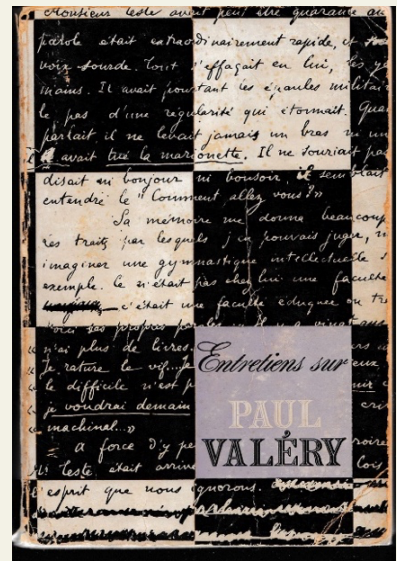 Monsieur Teste avait peut être quarante an
parole était extraordinairement rapide, et
voix sourde. Tout s'effaçait en lui, les ye
mains. Il avait pourtant les épaules militair
le pas d'une régularité qui étonnait. Quan
parlait il ne levait jamais un bras ni un
il avait tué la marionette. Il ne souriait pas
disait ni bonjour ni bonsoir, il semblait
entendre le "Comment allez vous?"
Sa mémoire me donna beaucoup
Les traits par lesquels j'en pouvais juger, m
imaginer une gymnastique intellectuelle s
exemple. Ce n'était pas chez lui une faculté
c'était une faculté éduquée ou tr
Voici ses propres paroles
"n'ai plus de livres.
Je rature le vif...
le difficile n'est p
je voudrai demain
machinal..."
à force d'y pe
Teste était arrivé
l'esprit que nous ignorons.
Entretiens sur
PAUL
VALÉRY